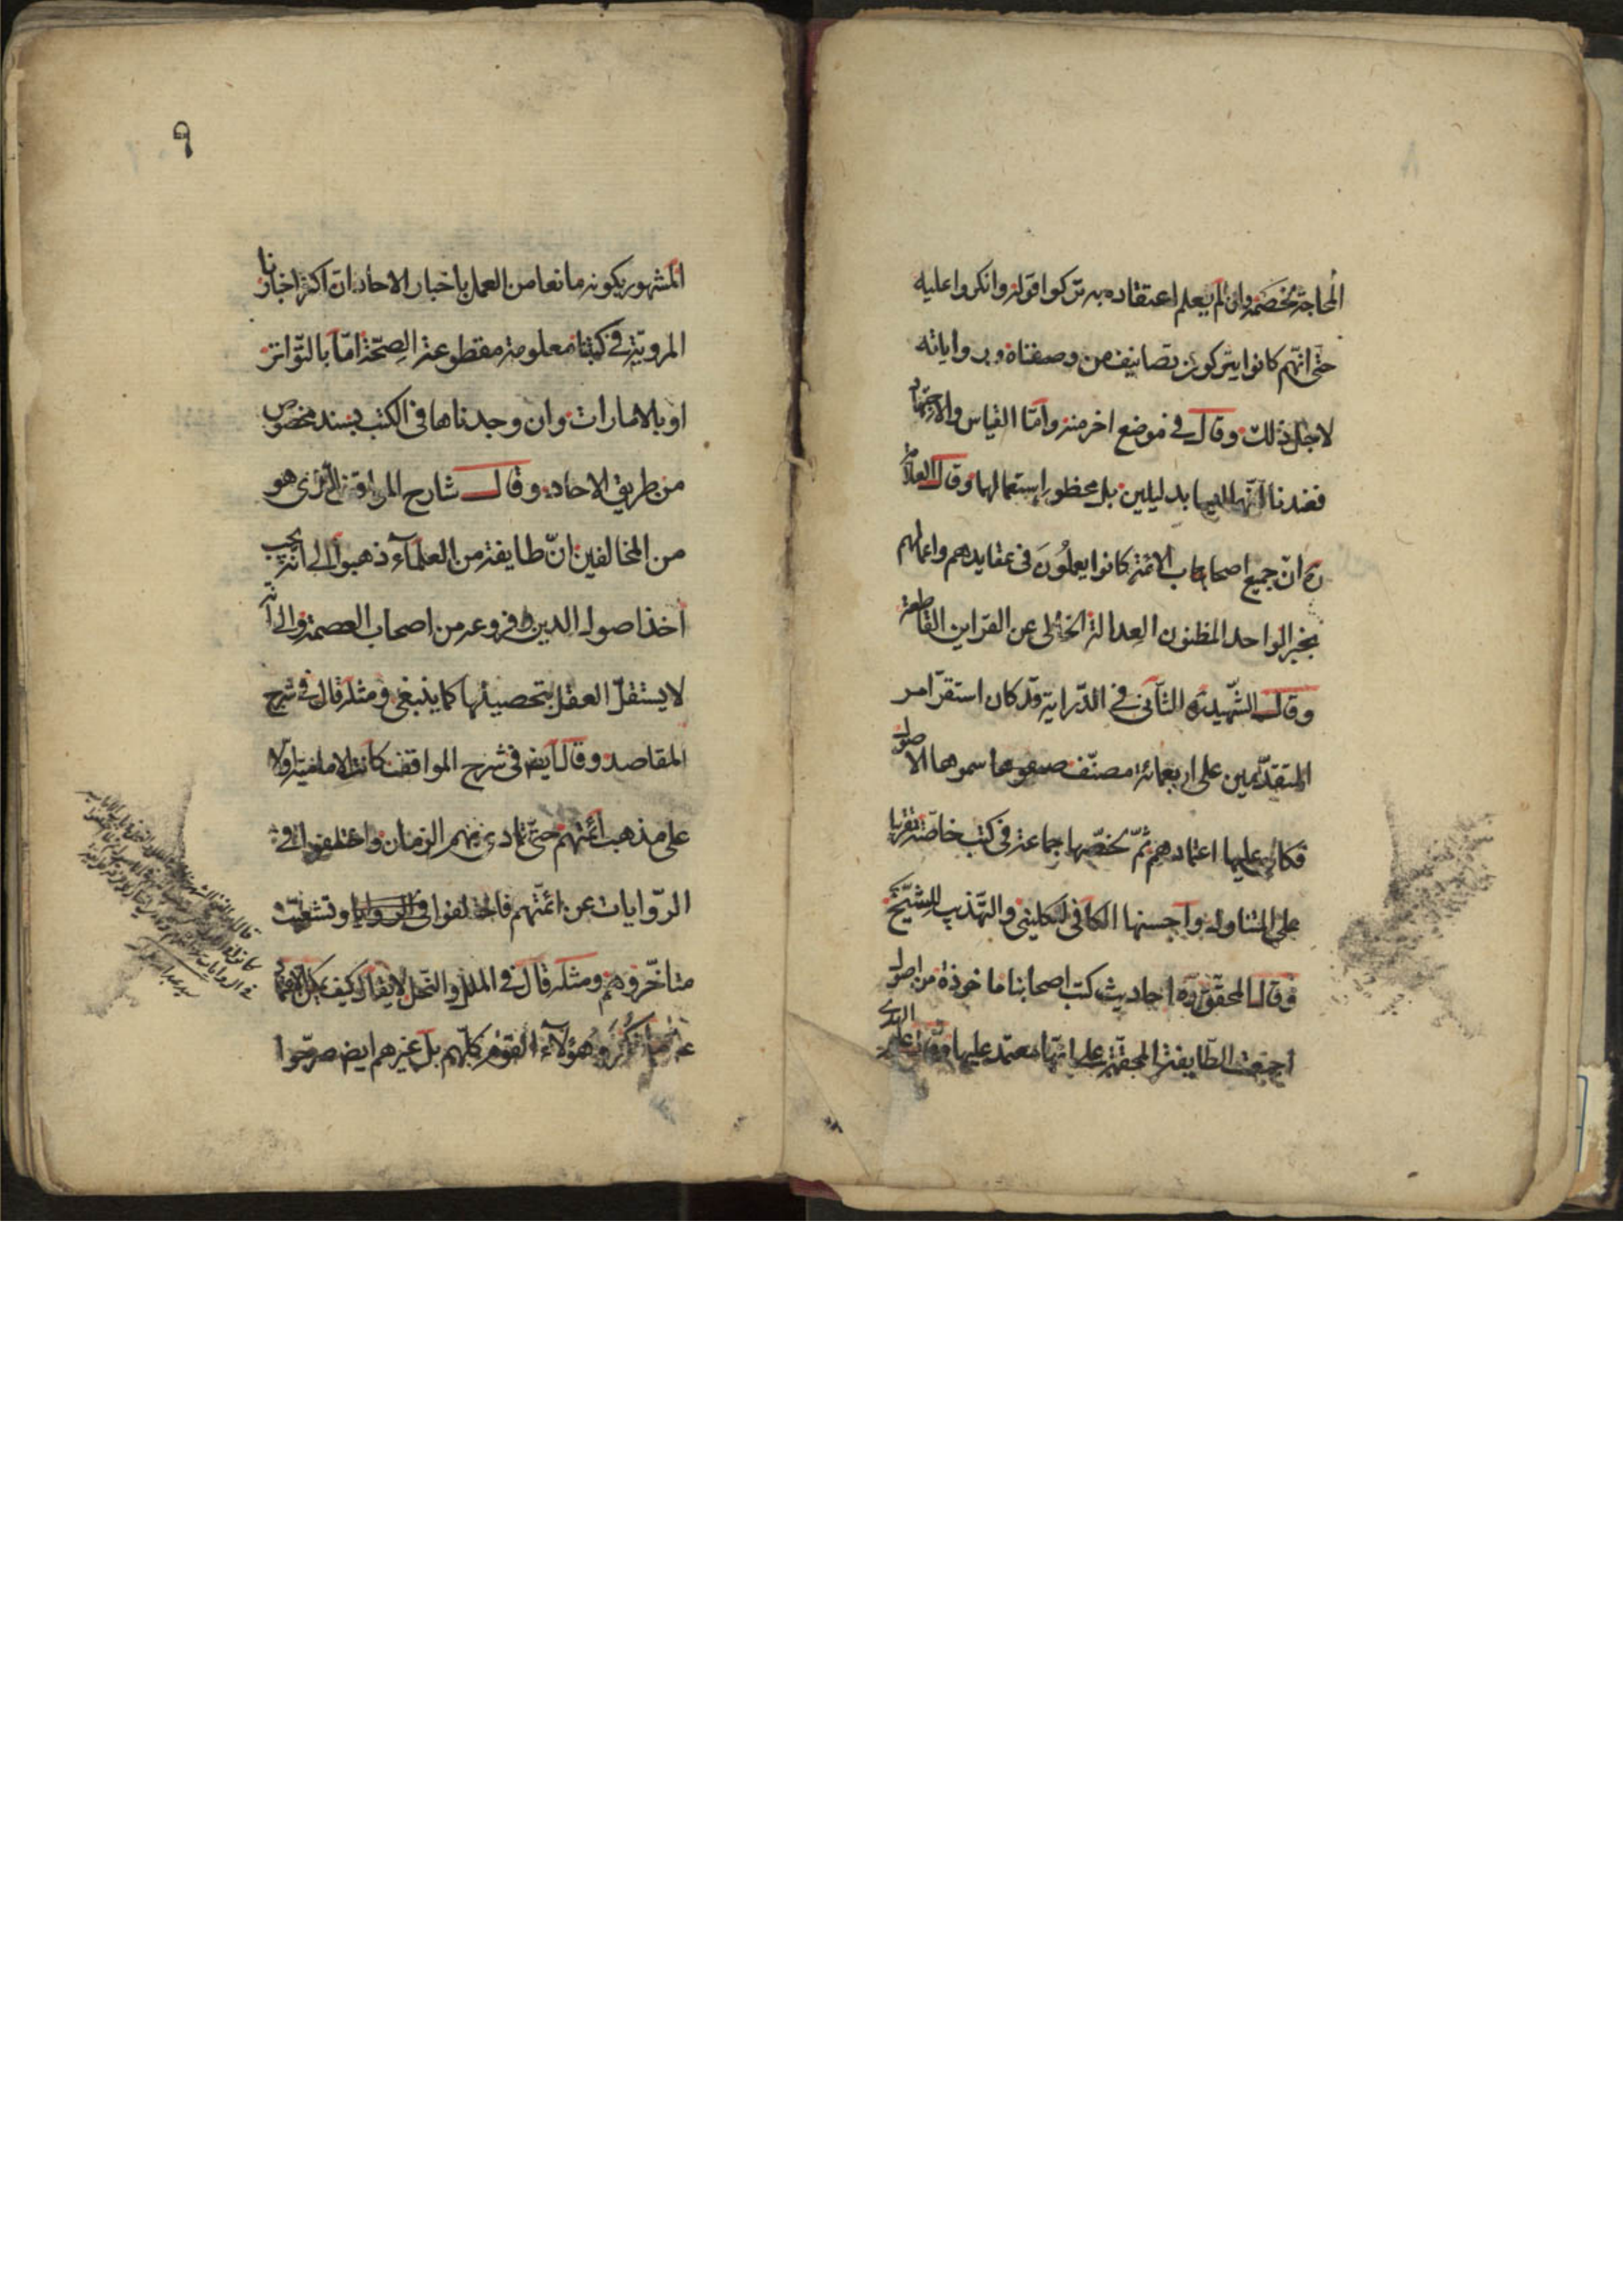 المحاجة لخصمه وان لم يعلم اعتقاده به تركوا قوله وانكروا عليه
حتى انهم كانوا يتركون تصانيف من وصفناه وبرواياته
لاجل ذلك وقال في موضع اخر منه واما القياس والاجتهاد
فعندنا انهما ليسا بدليلين بل محظور استعمالهما وقال العلامة
ره ان جميع اصحاب الائمة كانوا يعملون في عقايدهم واعمالهم
بخبر الواحد المظنون العدالة الخالى عن القراين القاطعة
وقال الشهيد ره الثاني في الدراية قد كان استقر امر
المتقدمين على اربعمائة مصنف سموها الاصول
فكان عليها اعتمادهم ثم لخصها جماعة في كتب خاصة تقريبا
على المتناول واحسنها الكافى للكليني والتهذيب للشيخ
وقال المحقق ره احاديث كتب اصحابنا ماخوذة من اصول
اجمعت الطايفة المحقة على انها معتمد عليها وقال علم الهدى
٩
المشهور بكونه مانعا من العمل باخبار الاحاد ان اكثر اخبارنا
المروية في كتبنا معلومة مقطوعة الصحة اما بالتواتر
او بالامارات وان وجدناها في الكتب بسند مخصوص
من طريق الاحاد وقال شارح المواقف الذى هو
من المخالفين ان طايفة من العلماء ذهبوا الى انه يجب
اخذ اصول الدين وفروعه من اصحاب العصمة والى انه
لا يستقل العقل بتحصيلها كما ينبغى ومثله قال في شرح
المقاصد وقال ايض في شرح المواقف كانت الامامية اولا
على مذهب ائمتهم حتى تمادى بهم الزمان واختلفوا في
الروايات عن ائمتهم فاختلفوا في الروايات وتشعبت
متاخروهم ومثله قال في الملل والنحل لا يقال كيف يمكن الاعتماد
على ما ذكره هؤلاء القوم كلهم بل غيرهم ايض صرحوا